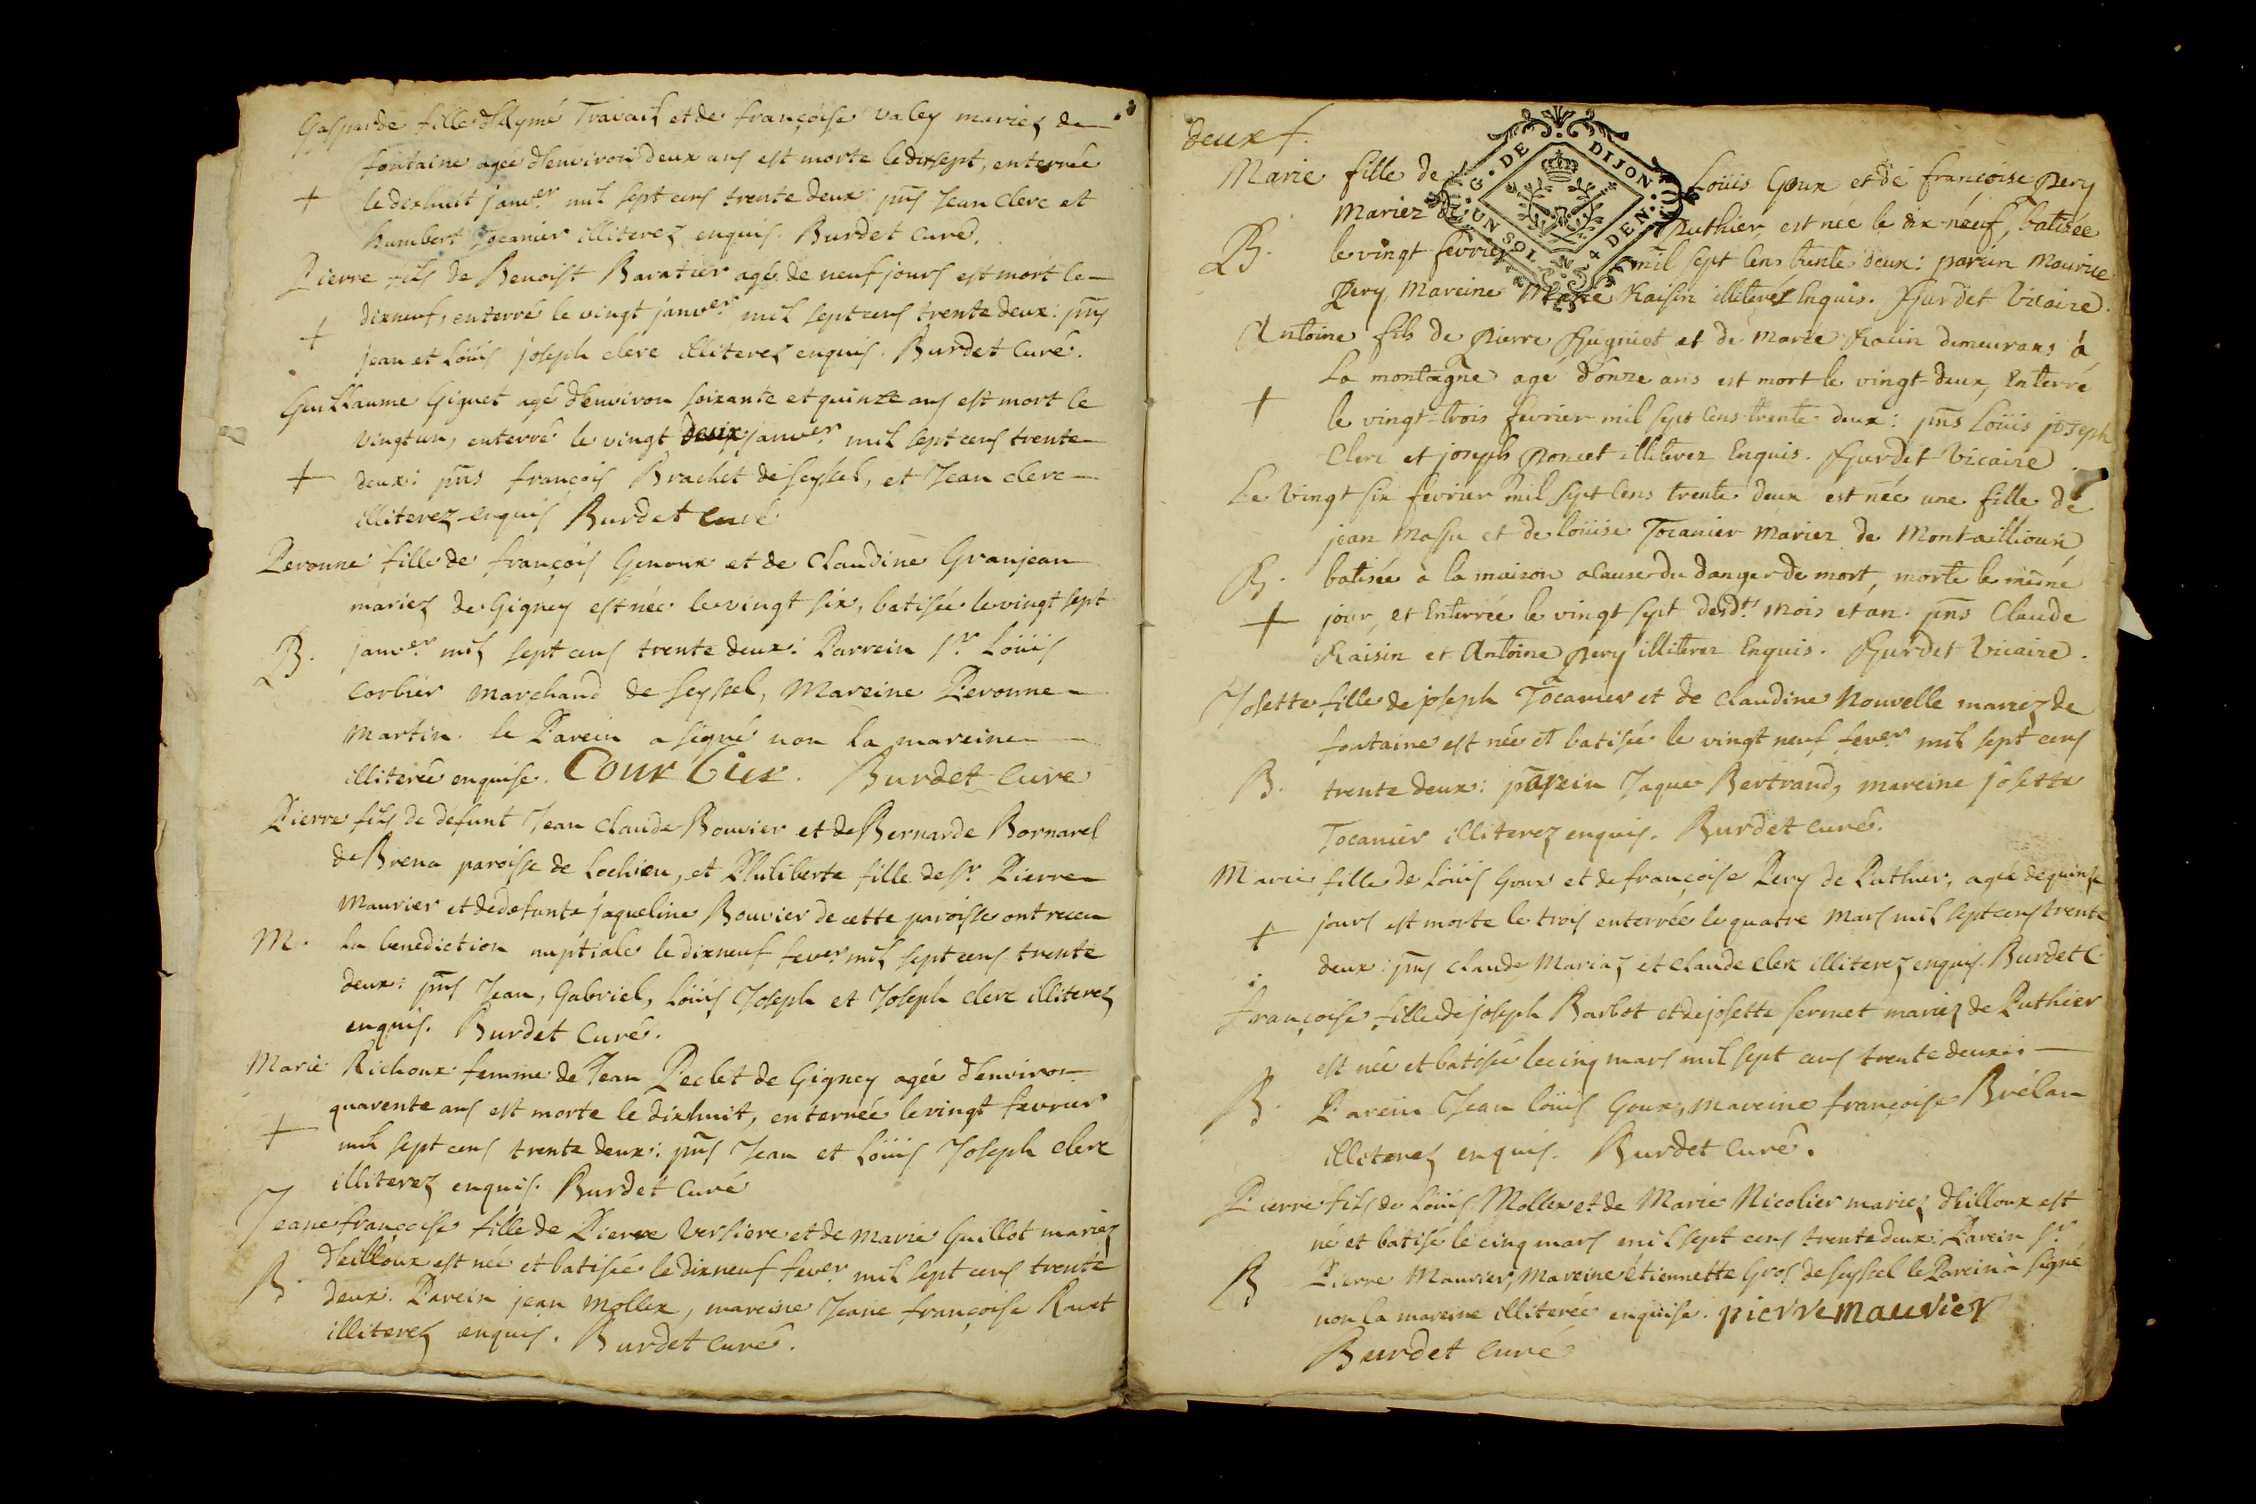 Gasparde fille d'Aymé Travail et de françoise valey mariez de
fontaine agée d'environ deux ans est morte le dixsept, enterrée
+ le dixhuit janv.er mil sept cens trente deux: pns Jean clerc et
humbert Tocanier illiterez enquis. Burdet Curé.
Pierre fils de Benoist Baratier agé de neuf jours est mort le
dixneuf, enterré le vingt janv.er mil sept cens trente deux: pns
+ jean et Loüis joseph clerc illiterez enquis. Burdet Curé.
Guillaume Giguet agé d'environ soixante et quinze ans est mort le
vingt un, enterré le vingt deux janv.er mil sept cens trente
+ deux: pns françois Brachet de seyssel, et Jean clerc
illiterez enquis Burdet Curé
Peronne fille de françois Genoux et de Claudine Granjean
mariez de Gigney est née le vingt six, batisée le vingt sept
B. janv.er mil sept cens trente deux: Parrein s.r Loüis
Corbier marchand de seyssel, Mareine Peronne
Martin. le Parein a signé non la mareine
illiterée enquise. Courbier. Burdet Curé
Pierre fils de defunt Jean Claude Bouvier et de Bernarde Bornarel
de Brena paroisse de Lochieu, et Philiberte fille de s.r Pierre
Mauvier et de defunte jaqueline Bouvier de cette paroisse ont receu
M. la benediction nuptiale le dixneuf fev.er mil sept cens trente
deux: pns Jean, Gabriel, Loüis Joseph et Joseph clerc illiterez
enquis. Burdet Curé.
Marie Richoux femme de Jean Peclet de Gigney agée d'environ
quarente ans est morte le dixhuit, enterrée le vingt fevrier
+ mil sept cens trente deux: pns Jean et Loüis Joseph clerc
illiterez enquis. Burdet Curé
Jeane françoise fille de Pierre Versiere et de Marie Guillot mariez
d'eilloux est née et batisée le dixneuf fev.er mil sept cens trente
B. deux. Parein jean Mollex, mareine Jeane françoise Ravet
illiterez enquis. Burdet Curé.
deux f.
G. DE DIJON
UN SOL 4 DEN.
Marie fille de Loüis Goux et de françoise Pery
Mariez de Puthier, est née le dix-neuf, batisée
B. le vingt fevrier mil sept cens trente deux: parein Maurice
Pery, Mareine Marie Raisin illiterez Enquis. Burdet Vicaire.
Antoine fils de Pierre Huguiet et de Marie Racin demeurans à
La montagne agé d'onze ans est mort le vingt-deux, Enterré
+ le vingt-trois fevrier mil sept cens trente deux: pns Loüis joseph
Clerc et joseph Poncet illiterez Enquis. Burdet Vicaire.
Le Vingt six fevrier mil sept cens trente deux est née une fille de
jean Massu et de loüise Tocanier Mariez de Montaillioux
B. batisée à la maison a cause du danger de mort, morte le mème
+ jour, et Enterrée le vingt sept desd.ts mois et an. pns Claude
Raisin et Antoine Pery illiterez Enquis. Burdet Vicaire.
Josette fille de joseph Tocanier et de Claudine Nouvelle mariez de
fontaine est née et batisée le vingt neuf fev.er mil sept cens
B. trente deux: parein Jaque Bertrand, mareine josette
Tocanier illiterez enquis. Burdet Curé.
Marie fille de Loüis Goux et de françoise Pery de Puthier, agée de quinze
+ jours est morte le trois enterrée le quatre Mars mil sept cens trente
deux: pns Claude Mariaz et Claude clerc illiterez enquis. Burdet C.
françoise fille de joseph Barbot et de josette sermet mariez de Puthier
est née et batisée le cinq mars mil sept cens trente deux:
B. Parein Jean loüis Goux, mareine françoise Brélan
illiterez enquis. Burdet Curé.
Pierre fils de Loüis Mollex et de Marie Nicolier mariez d'eilloux est
né et batisé le cinq mars mil sept cens trente deux: Parein s.r
B Pierre Mauvier, Mareine étiennette Gros de seyssel le Parein à signé
non la mareine illiterée enquise. pierre mauvier
Burdet Curé